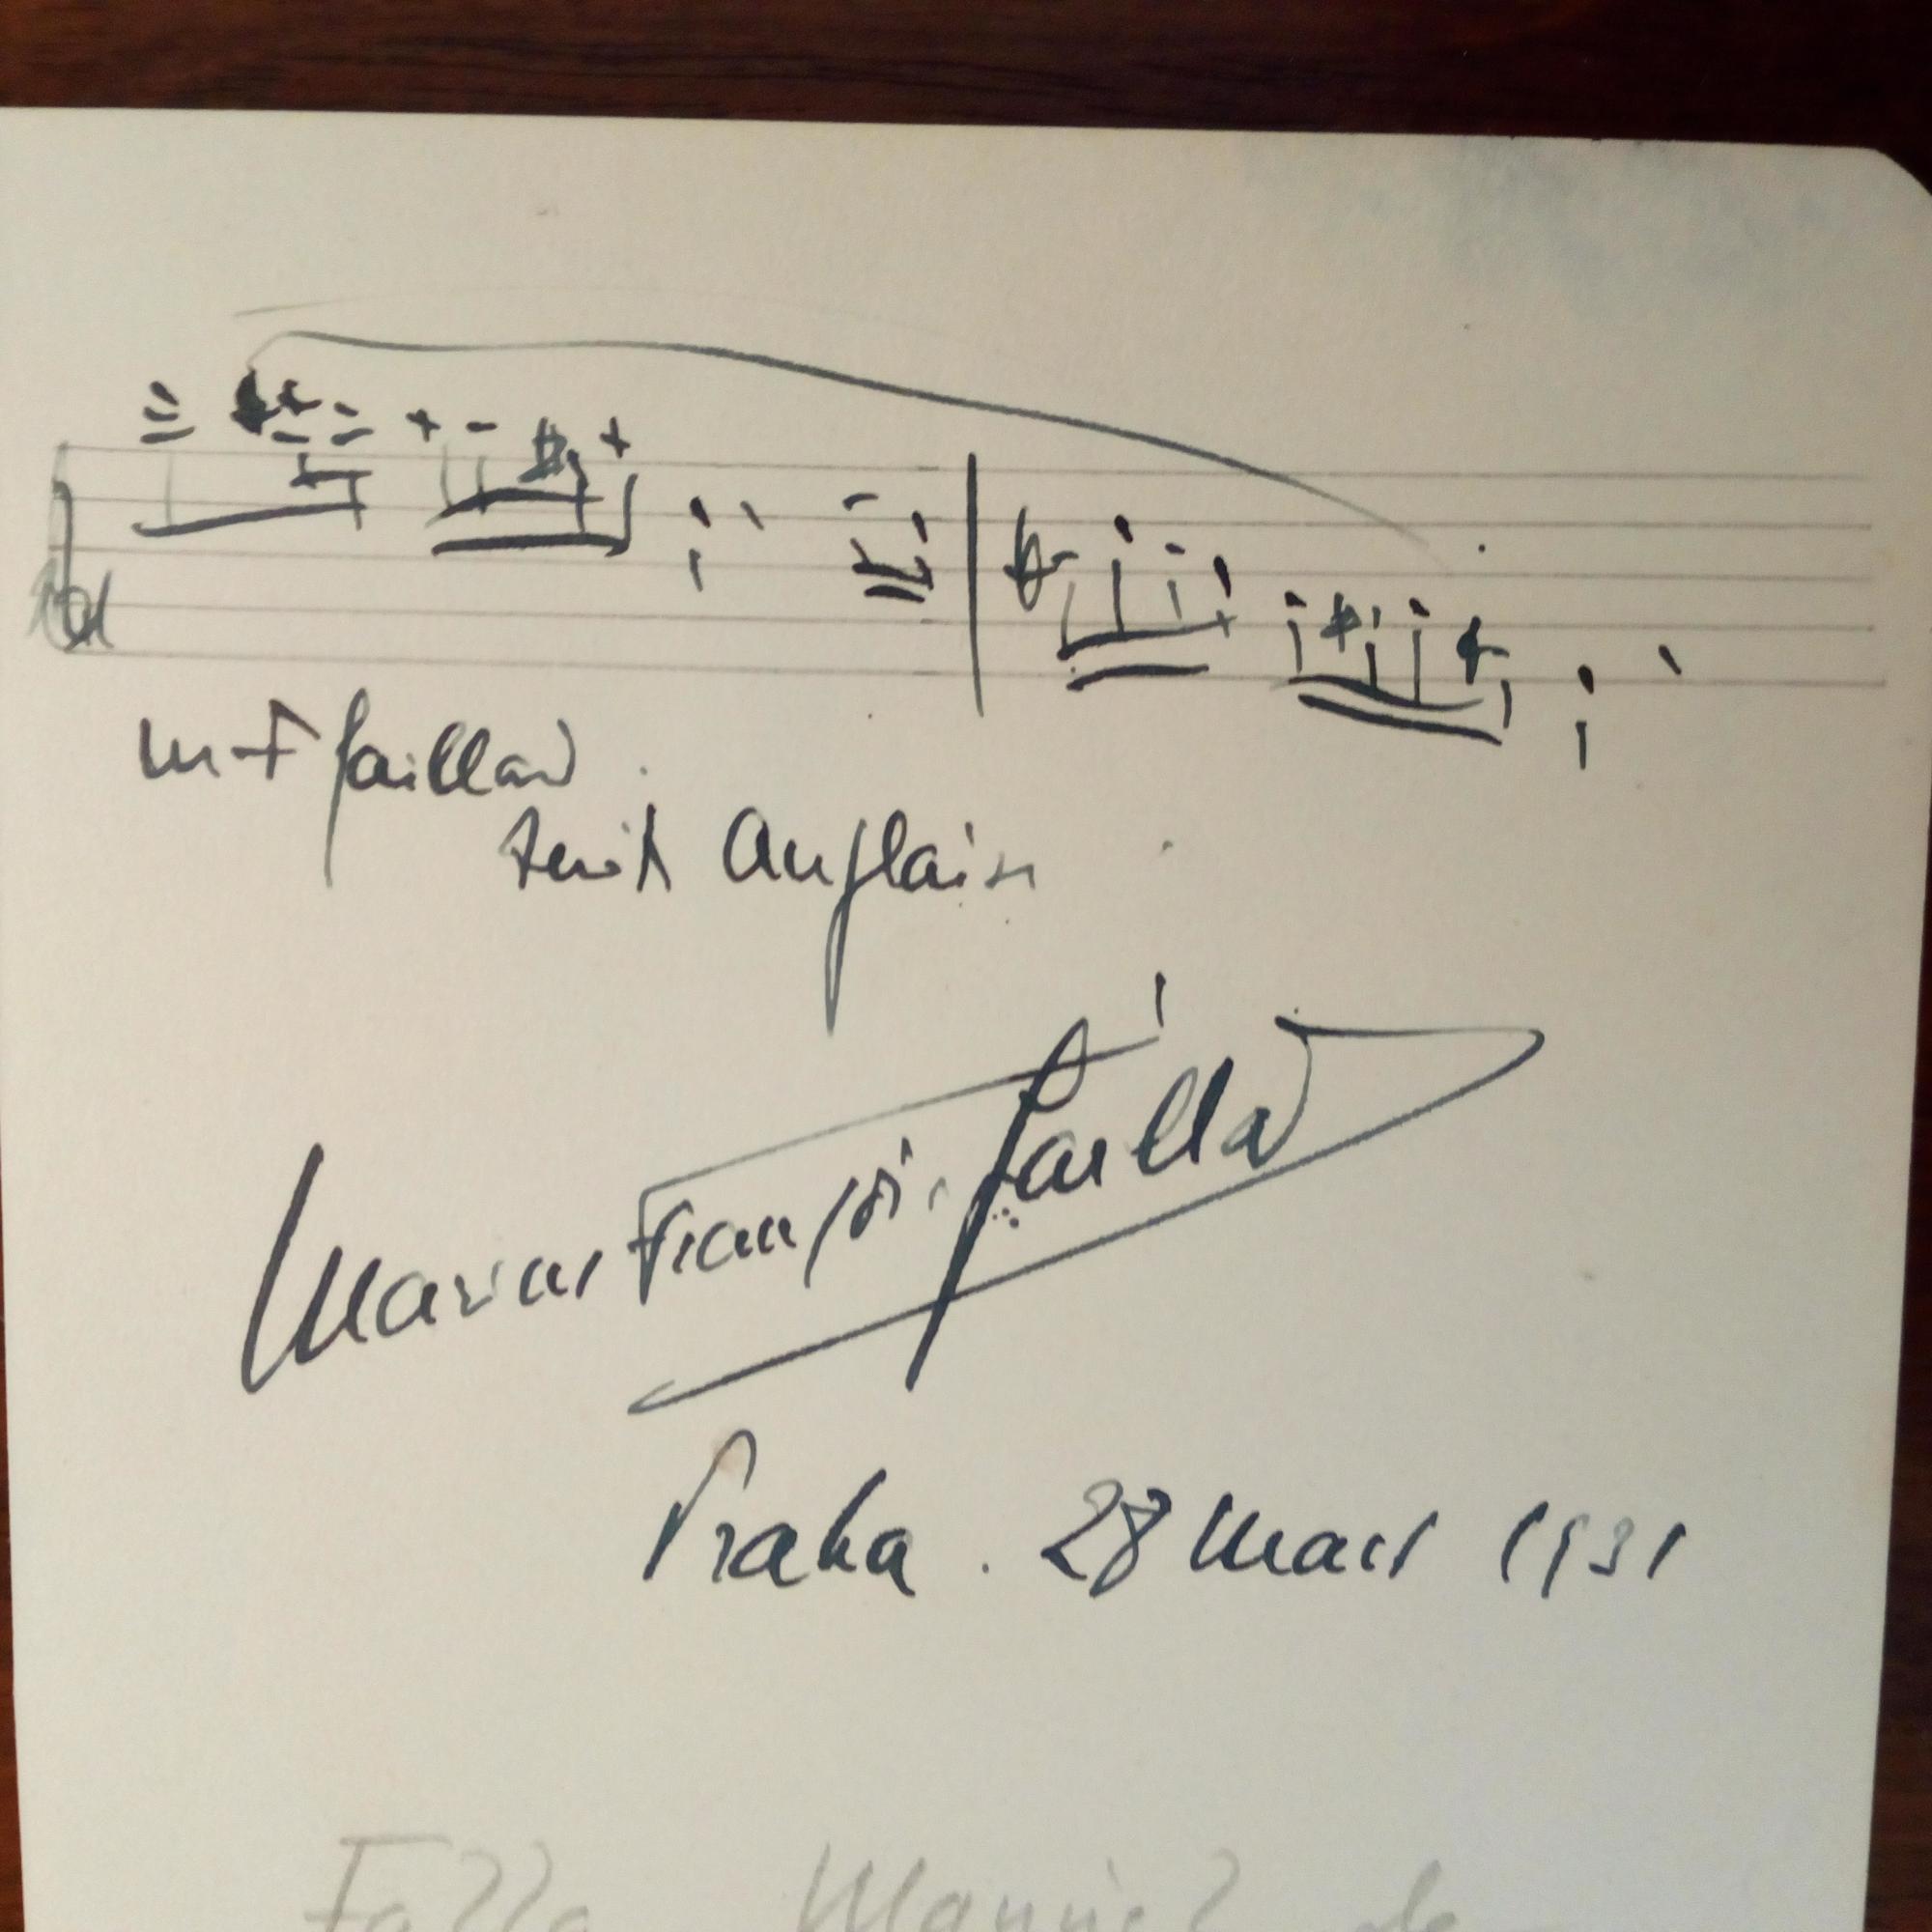 M F Gaillard
Suite Anglaise
Marius François Gaillard
Praha. 28 Mars 1931
Falla Manuel de